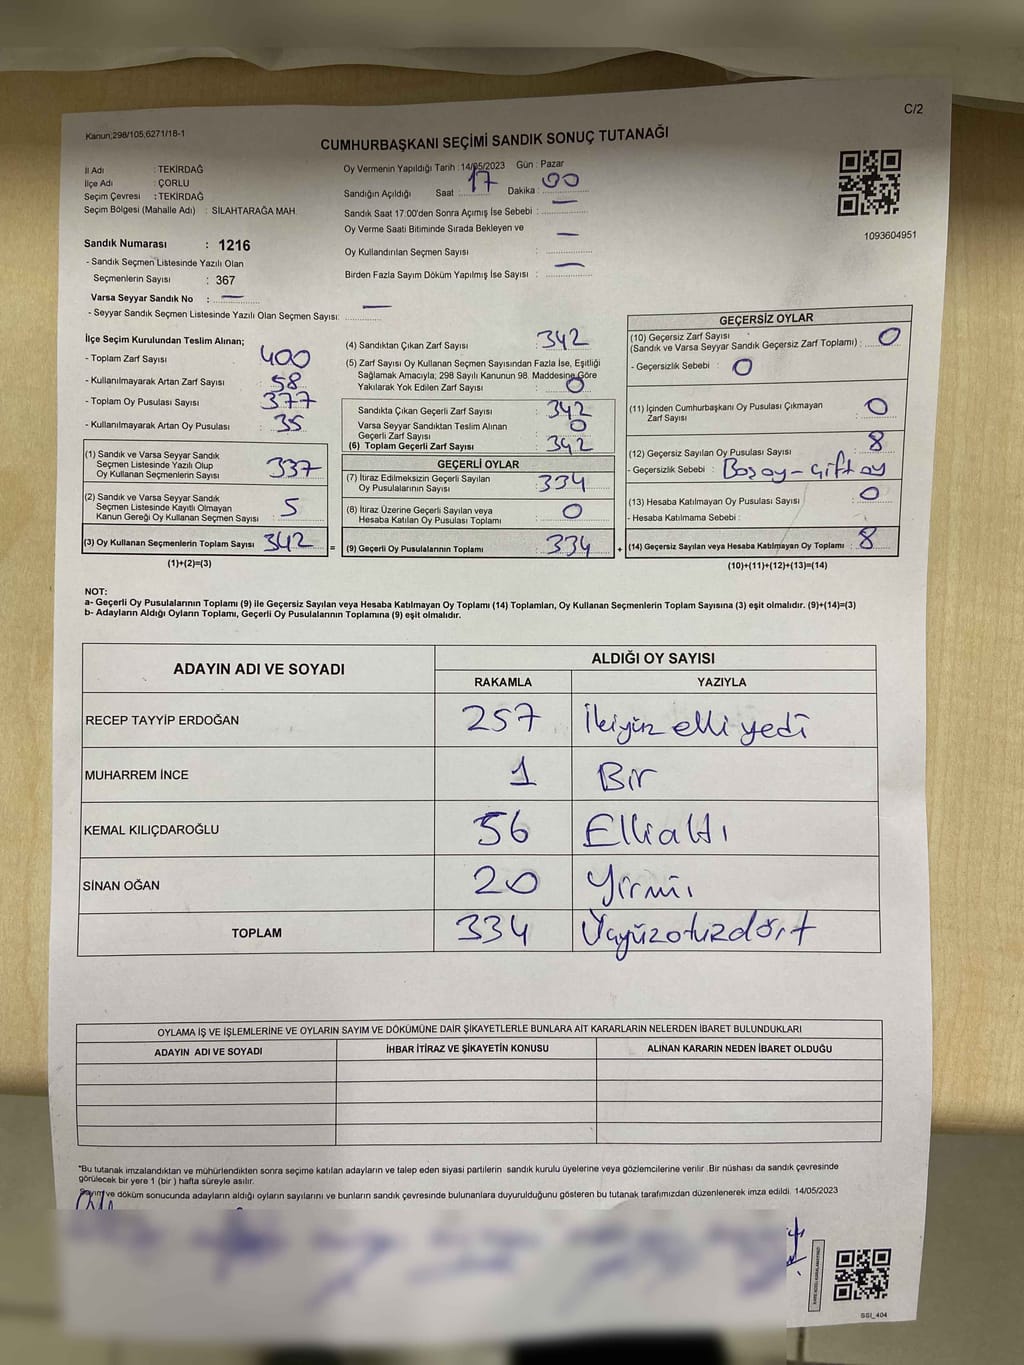 C/2
Kanun;298/105;6271/18-1
CUMHURBAŞKANI SEÇİMİ SANDIK SONUÇ TUTANAĞI
İl Adı : TEKİRDAĞ
İlçe Adı : ÇORLU
Seçim Çevresi : TEKİRDAĞ
Seçim Bölgesi (Mahalle Adı) : SİLAHTARAĞA MAH.
Oy Vermenin Yapıldığı Tarih : 14/05/2023 Gün : Pazar
Sandığın Açıldığı Saat 17 Dakika : 00
Sandık Saat 17:00'den Sonra Açımış İse Sebebi : —
Oy Verme Saati Bitiminde Sırada Bekleyen ve
Oy Kullandırılan Seçmen Sayısı : —
Birden Fazla Sayım Döküm Yapılmış İse Sayısı : —
1093604951
Sandık Numarası : 1216
- Sandık Seçmen Listesinde Yazılı Olan
Seçmenlerin Sayısı : 367
Varsa Seyyar Sandık No : —
- Seyyar Sandık Seçmen Listesinde Yazılı Olan Seçmen Sayısı: —
İlçe Seçim Kurulundan Teslim Alınan;
- Toplam Zarf Sayısı : 400
- Kullanılmayarak Artan Zarf Sayısı : 58
- Toplam Oy Pusulası Sayısı : 377
- Kullanılmayarak Artan Oy Pusulası : 35
(1) Sandık ve Varsa Seyyar Sandık
Seçmen Listesinde Yazılı Olup
Oy Kullanan Seçmenlerin Sayısı : 337
(2) Sandık ve Varsa Seyyar Sandık
Seçmen Listesinde Kayıtlı Olmayan
Kanun Gereği Oy Kullanan Seçmen Sayısı : 5
(3) Oy Kullanan Seçmenlerin Toplam Sayısı : 342
(1)+(2)=(3)
(4) Sandıktan Çıkan Zarf Sayısı : 342
(5) Zarf Sayısı Oy Kullanan Seçmen Sayısından Fazla İse, Eşitliği
Sağlamak Amacıyla; 298 Sayılı Kanunun 98. Maddesine Göre
Yakılarak Yok Edilen Zarf Sayısı : 0
Sandıkta Çıkan Geçerli Zarf Sayısı : 342
Varsa Seyyar Sandıktan Teslim Alınan
Geçerli Zarf Sayısı : 0
(6) Toplam Geçerli Zarf Sayısı : 342
GEÇERLİ OYLAR
(7) İtiraz Edilmeksizin Geçerli Sayılan
Oy Pusulalarının Sayısı : 334
(8) İtiraz Üzerine Geçerli Sayılan veya
Hesaba Katılan Oy Pusulası Toplamı : 0
= (9) Geçerli Oy Pusulalarının Toplamı : 334 +
GEÇERSİZ OYLAR
(10) Geçersiz Zarf Sayısı
(Sandık ve Varsa Seyyar Sandık Geçersiz Zarf Toplamı) : 0
- Geçersizlik Sebebi : 0
(11) İçinden Cumhurbaşkanı Oy Pusulası Çıkmayan
Zarf Sayısı : 0
(12) Geçersiz Sayılan Oy Pusulası Sayısı : 8
- Geçersizlik Sebebi : Boş oy - Çift oy
(13) Hesaba Katılmayan Oy Pusulası Sayısı : 0
- Hesaba Katılmama Sebebi :
(14) Geçersiz Sayılan veya Hesaba Katılmayan Oy Toplamı : 8
(10)+(11)+(12)+(13)=(14)
NOT:
a- Geçerli Oy Pusulalarının Toplamı (9) ile Geçersiz Sayılan veya Hesaba Katılmayan Oy Toplamı (14) Toplamları, Oy Kullanan Seçmenlerin Toplam Sayısına (3) eşit olmalıdır. (9)+(14)=(3)
b- Adayların Aldığı Oyların Toplamı, Geçerli Oy Pusulalarının Toplamına (9) eşit olmalıdır.
ADAYIN ADI VE SOYADI ALDIĞI OY SAYISI
RAKAMLA YAZIYLA
RECEP TAYYİP ERDOĞAN 257 İkiyüz elli yedi
MUHARREM İNCE 1 Bir
KEMAL KILIÇDAROĞLU 56 Ellialtı
SİNAN OĞAN 20 Yirmi
TOPLAM 334 Üçyüzotuzdört
OYLAMA İŞ VE İŞLEMLERİNE VE OYLARIN SAYIM VE DÖKÜMÜNE DAİR ŞİKAYETLERLE BUNLARA AİT KARARLARIN NELERDEN İBARET BULUNDUKLARI
ADAYIN ADI VE SOYADI İHBAR İTİRAZ VE ŞİKAYETİN KONUSU ALINAN KARARIN NEDEN İBARET OLDUĞU
*Bu tutanak imzalandıktan ve mühürlendikten sonra seçime katılan adayların ve talep eden siyasi partilerin sandık kurulu üyelerine veya gözlemcilerine verilir .Bir nüshası da sandık çevresinde
görülecek bir yere 1 (bir ) hafta süreyle asılır.
Sayım ve döküm sonucunda adayların aldığı oyların sayılarını ve bunların sandık çevresinde bulunanlara duyurulduğunu gösteren bu tutanak tarafımızdan düzenlenerek imza edildi. 14/05/2023
SSI_404